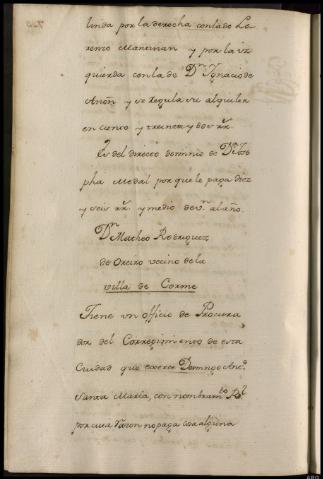 linda por la derecha con la de Lo
renzo Martinan y por la iz
quierda con la de Dn. Ignacio de
Anòn y se regula su alquiler
en ciento y treinta y dos rs.
Es del directo dominio de Da. Jose
pha Medal por que le paga diez
y seis rs. y medio de vn. al año.
Dn. Matheo Rodriguez
de Oreiro vecino de la
villa de Corme
Tiene un officio de Procura
dor del Corregimiento de esta
Ciudad que exerce Domingo Anto.
Santa Maria, con nombramto. Rl.
por cuia razon no paga cosa alguna